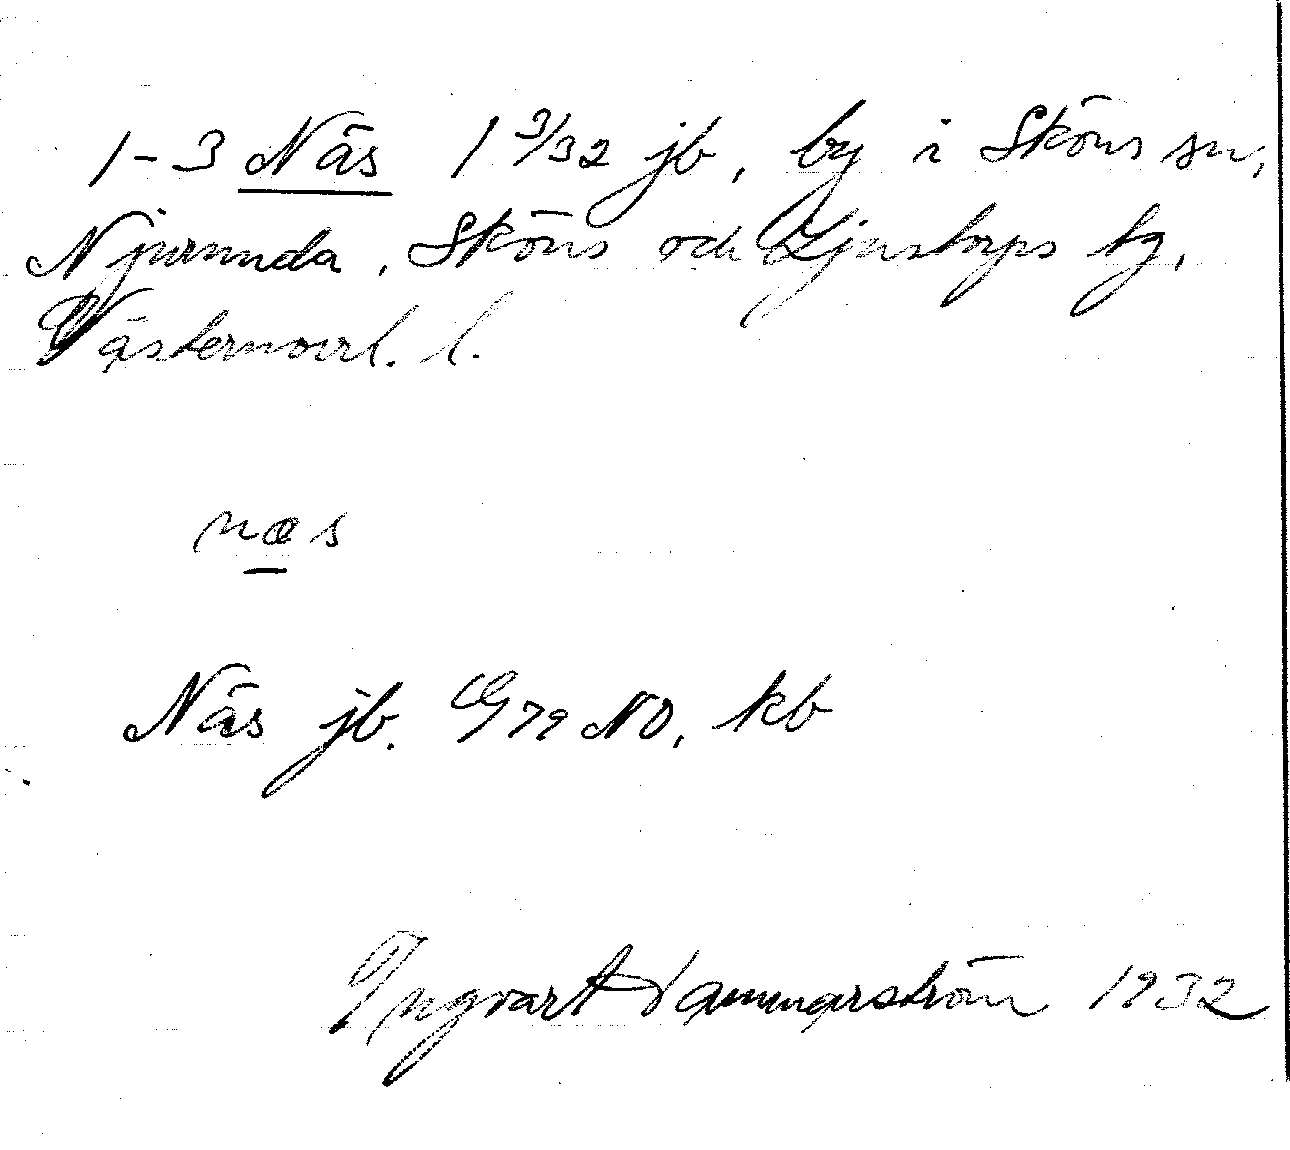 1-3 Näs 1 3/32 jb, by i Sköns sn,
Njurunda, Sköns och Ljustorps tg,
Västernorrl. l.
næs
Näs jb. G79 NO, kb
Ingvart Hammarström 1932